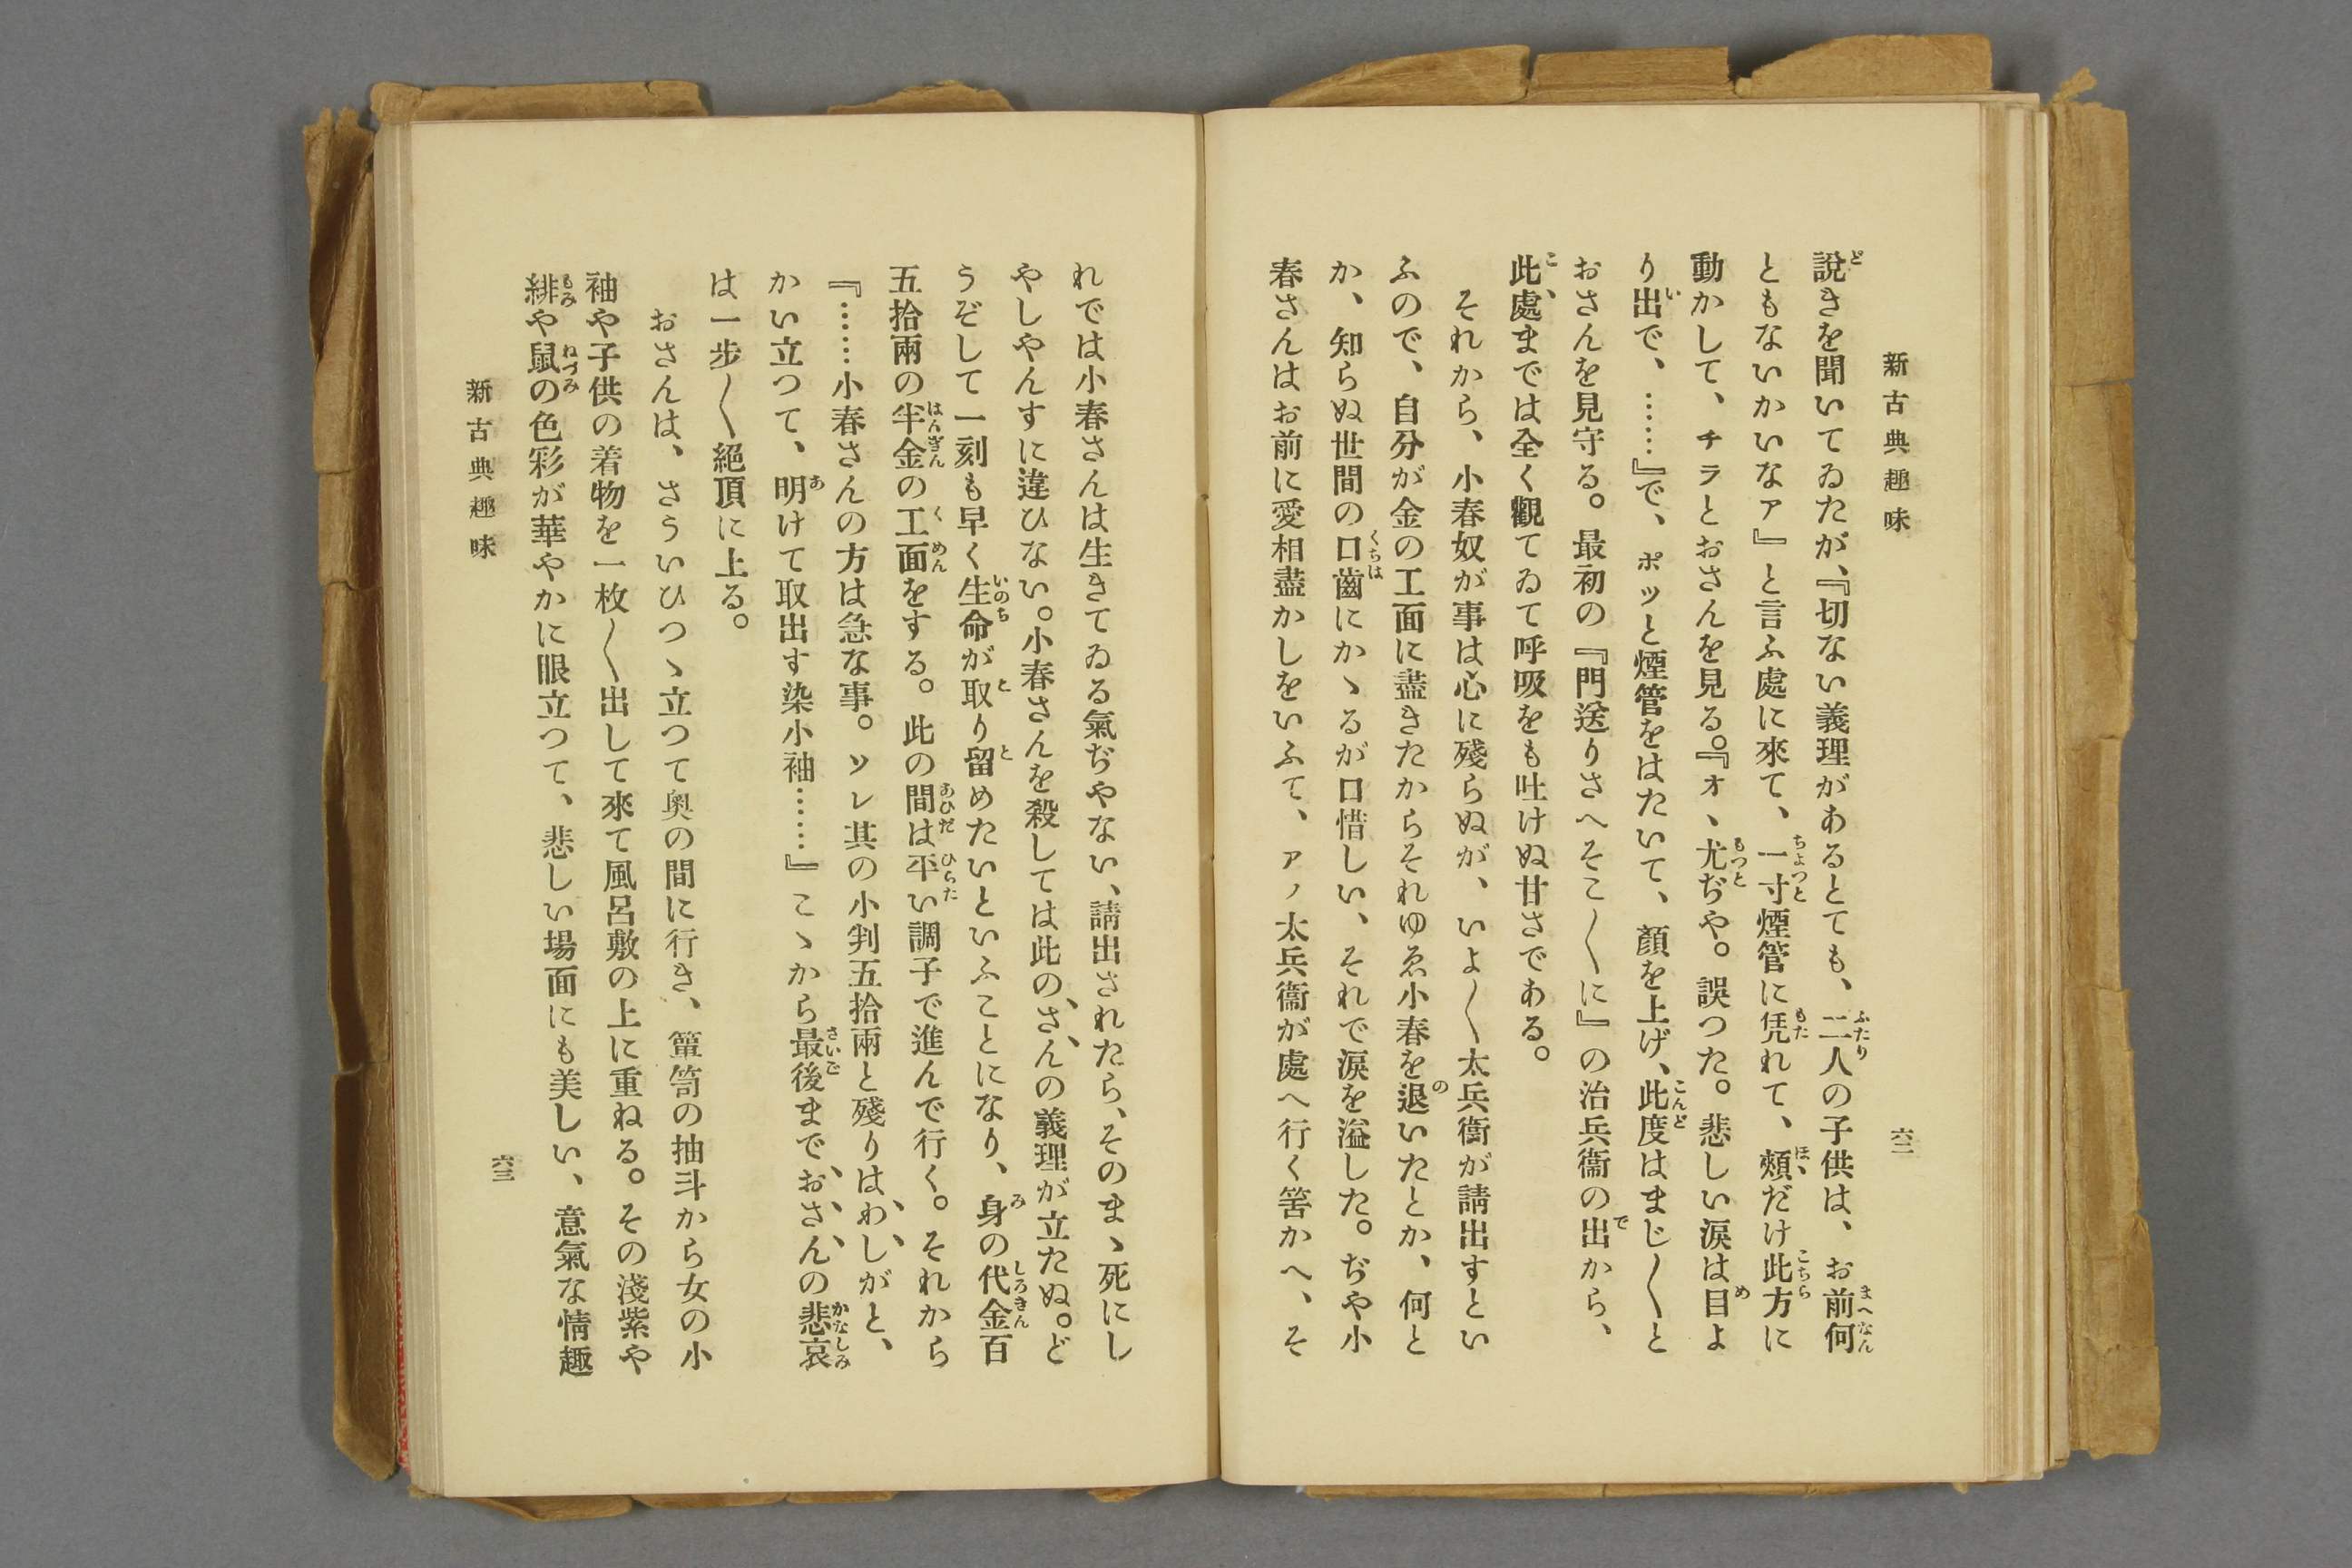 新古典趣味
六二
說きを聞いてゐたが、『切ない義理があるとても、二人の子供は、お前何
ともないかいなァ』と言ふ處に來て、一寸煙管に凭れて、頰だけ此方に
動かして、チラとおさんを見る。『オヽ尤ぢや。誤つた。悲しい淚は目よ
り出で、……』で、ポッと煙管をはたいて、顏を上げ、此度はまじ〱と
おさんを見守る。最初の『門送りさへそこ〱に』の治兵衞の出から、
此處までは全く觀てゐて呼吸をも吐けぬ甘さである。
それから、小春奴が事は心に殘らぬが、いよ〱太兵衞が請出すとい
ふので、自分が金の工面に盡きたからそれゆゑ小春を退いたとか、何と
か、知らぬ世間の口齒にかゝるが口惜しい、それで淚を溢した。ぢや小
春さんはお前に愛相盡かしをいふて、アノ太兵衞が處へ行く筈かへ、そ
れでは小春さんは生きてゐる氣ぢやない、請出されたら、そのまゝ死にし
やしやんすに違ひない。小春さんを殺しては此の、さんの義理が立たぬ。ど
うぞして一刻も早く生命が取り留めたいといふことになり、身の代金百
五拾兩の半金の工面をする。此の間は平い調子で進んで行く。それから
『……小春さんの方は急な事。ソレ其の小判五拾兩と殘りは、わしがと、
かい立つて、明けて取出す染小袖……』こゝから最後まで、おさんの悲哀
は一步〱絕頂に上る。
おさんは、さういひつゝ立つて奥の間に行き、簞笥の抽斗から女の小
袖や子供の着物を一枚〱出して來て風呂敷の上に重ねる。その淺紫や
緋や鼠の色彩が華やかに眼立つて、悲しい場面にも美しい、意氣な情趣
新古典趣味
六三